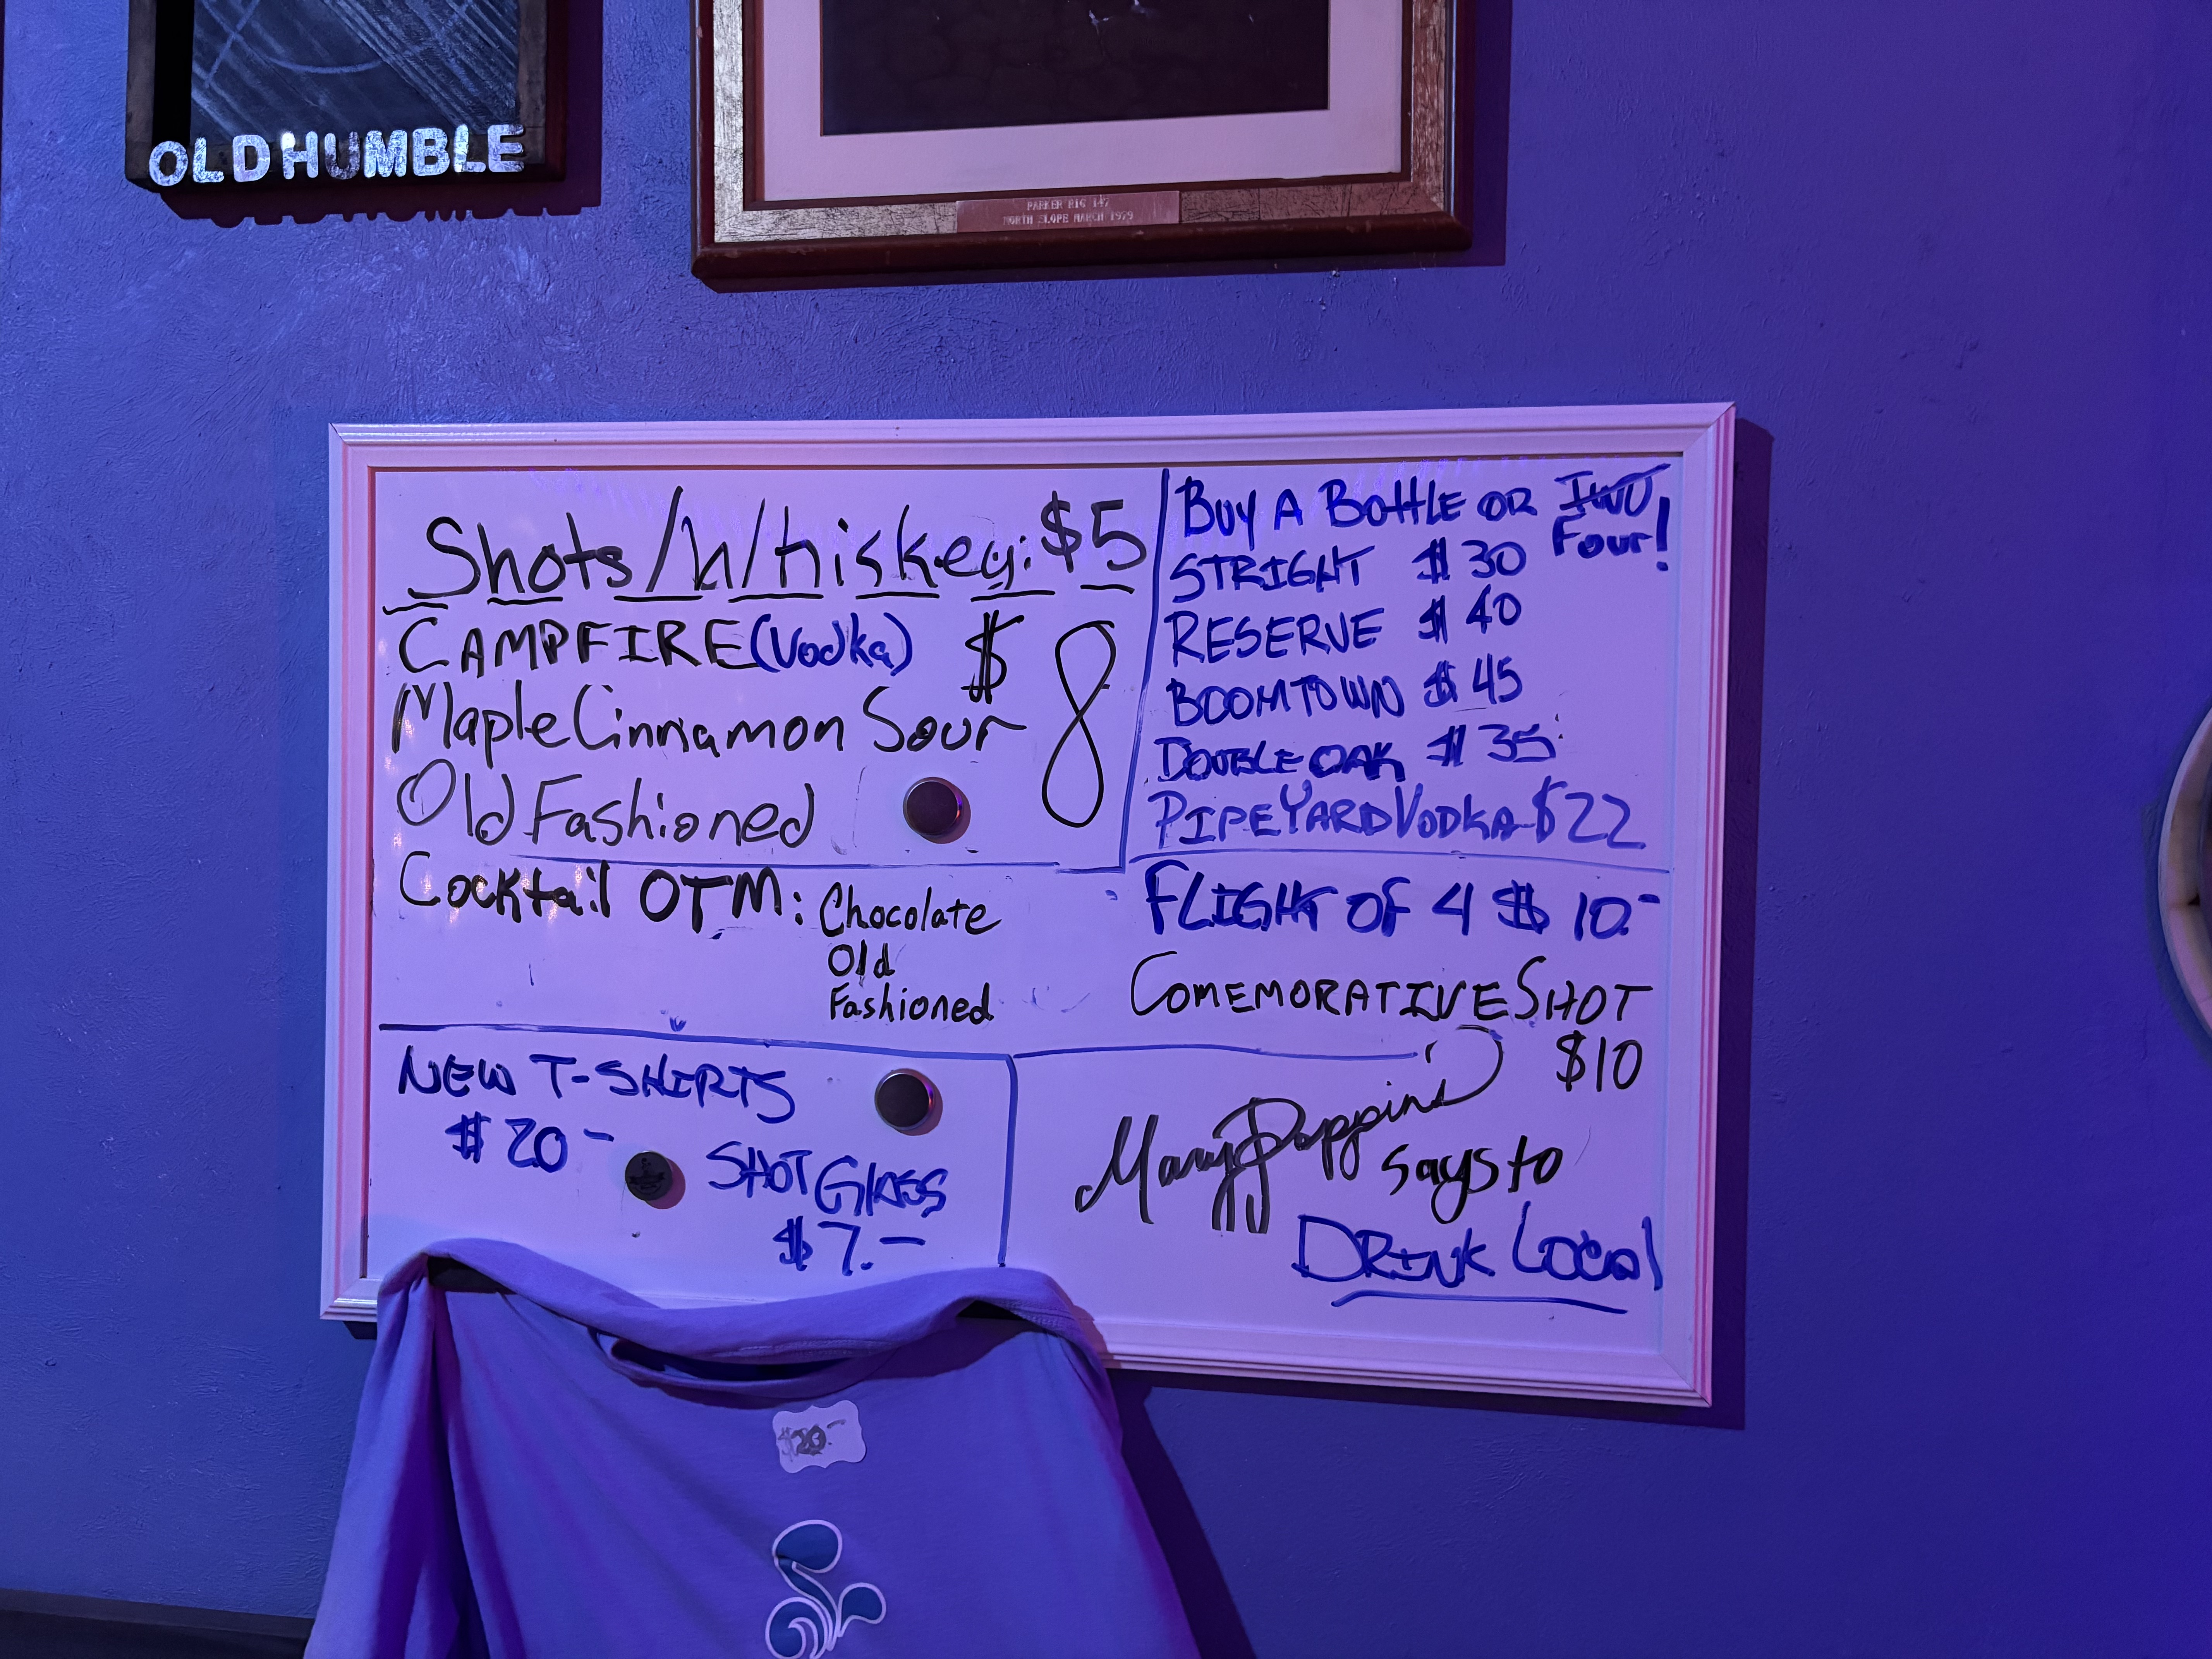 OLD HUMBLE
PARKER RIG 147
NORTH SLOPE MARCH 1979
Shots/Whiskey: $5
CAMPFIRE (Vodka) $8
Maple Cinnamon Sour
Old Fashioned
Cocktail OTM: Chocolate
Old
Fashioned
BUY A BOttLE OR TWO
Four!
STRIGHT $30
RESERVE $40
BOOMTOWN $45
DOUBLE OAK $35
PIPEYARD VODKA $22
FLIGHT OF 4 $10.-
COMEMORATIVE SHOT
$10
NEW T-SHIRTS
$20-
SHOT GLASS
$7.-
Mary Poppins
says to
DRINK LOCAL
$20.-